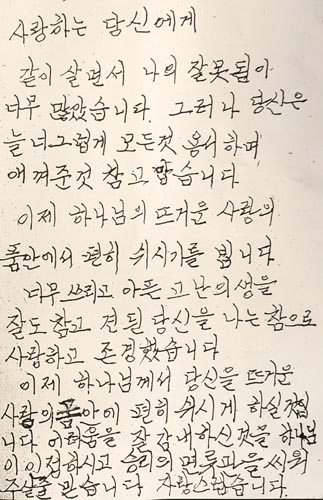 사랑하는 당신에게
같이 살면서 나의 잘못됨이
너무 많았습니다. 그러나 당신은
늘 너그럽게 모든것 용서하며
애껴준것 참고맙습니다
이제 하나님의 뜨거운 사랑의
품안에서 편히 쉬시기를 빕니다
너무 쓰리고 아픈 고난의 생을
잘도 참고 견딘 당신을 나는 참으로
사랑하고 존경했습니다
이제 하나님께서 당신을 뜨거운
사랑의 품안에 편히 쉬시게 하실것입
니다 어려움을 잘 감내하신것을 하나님
이 인정하시고 승리의 면류관을 씌워
주실줄 믿습니다 자랑스럽습니다